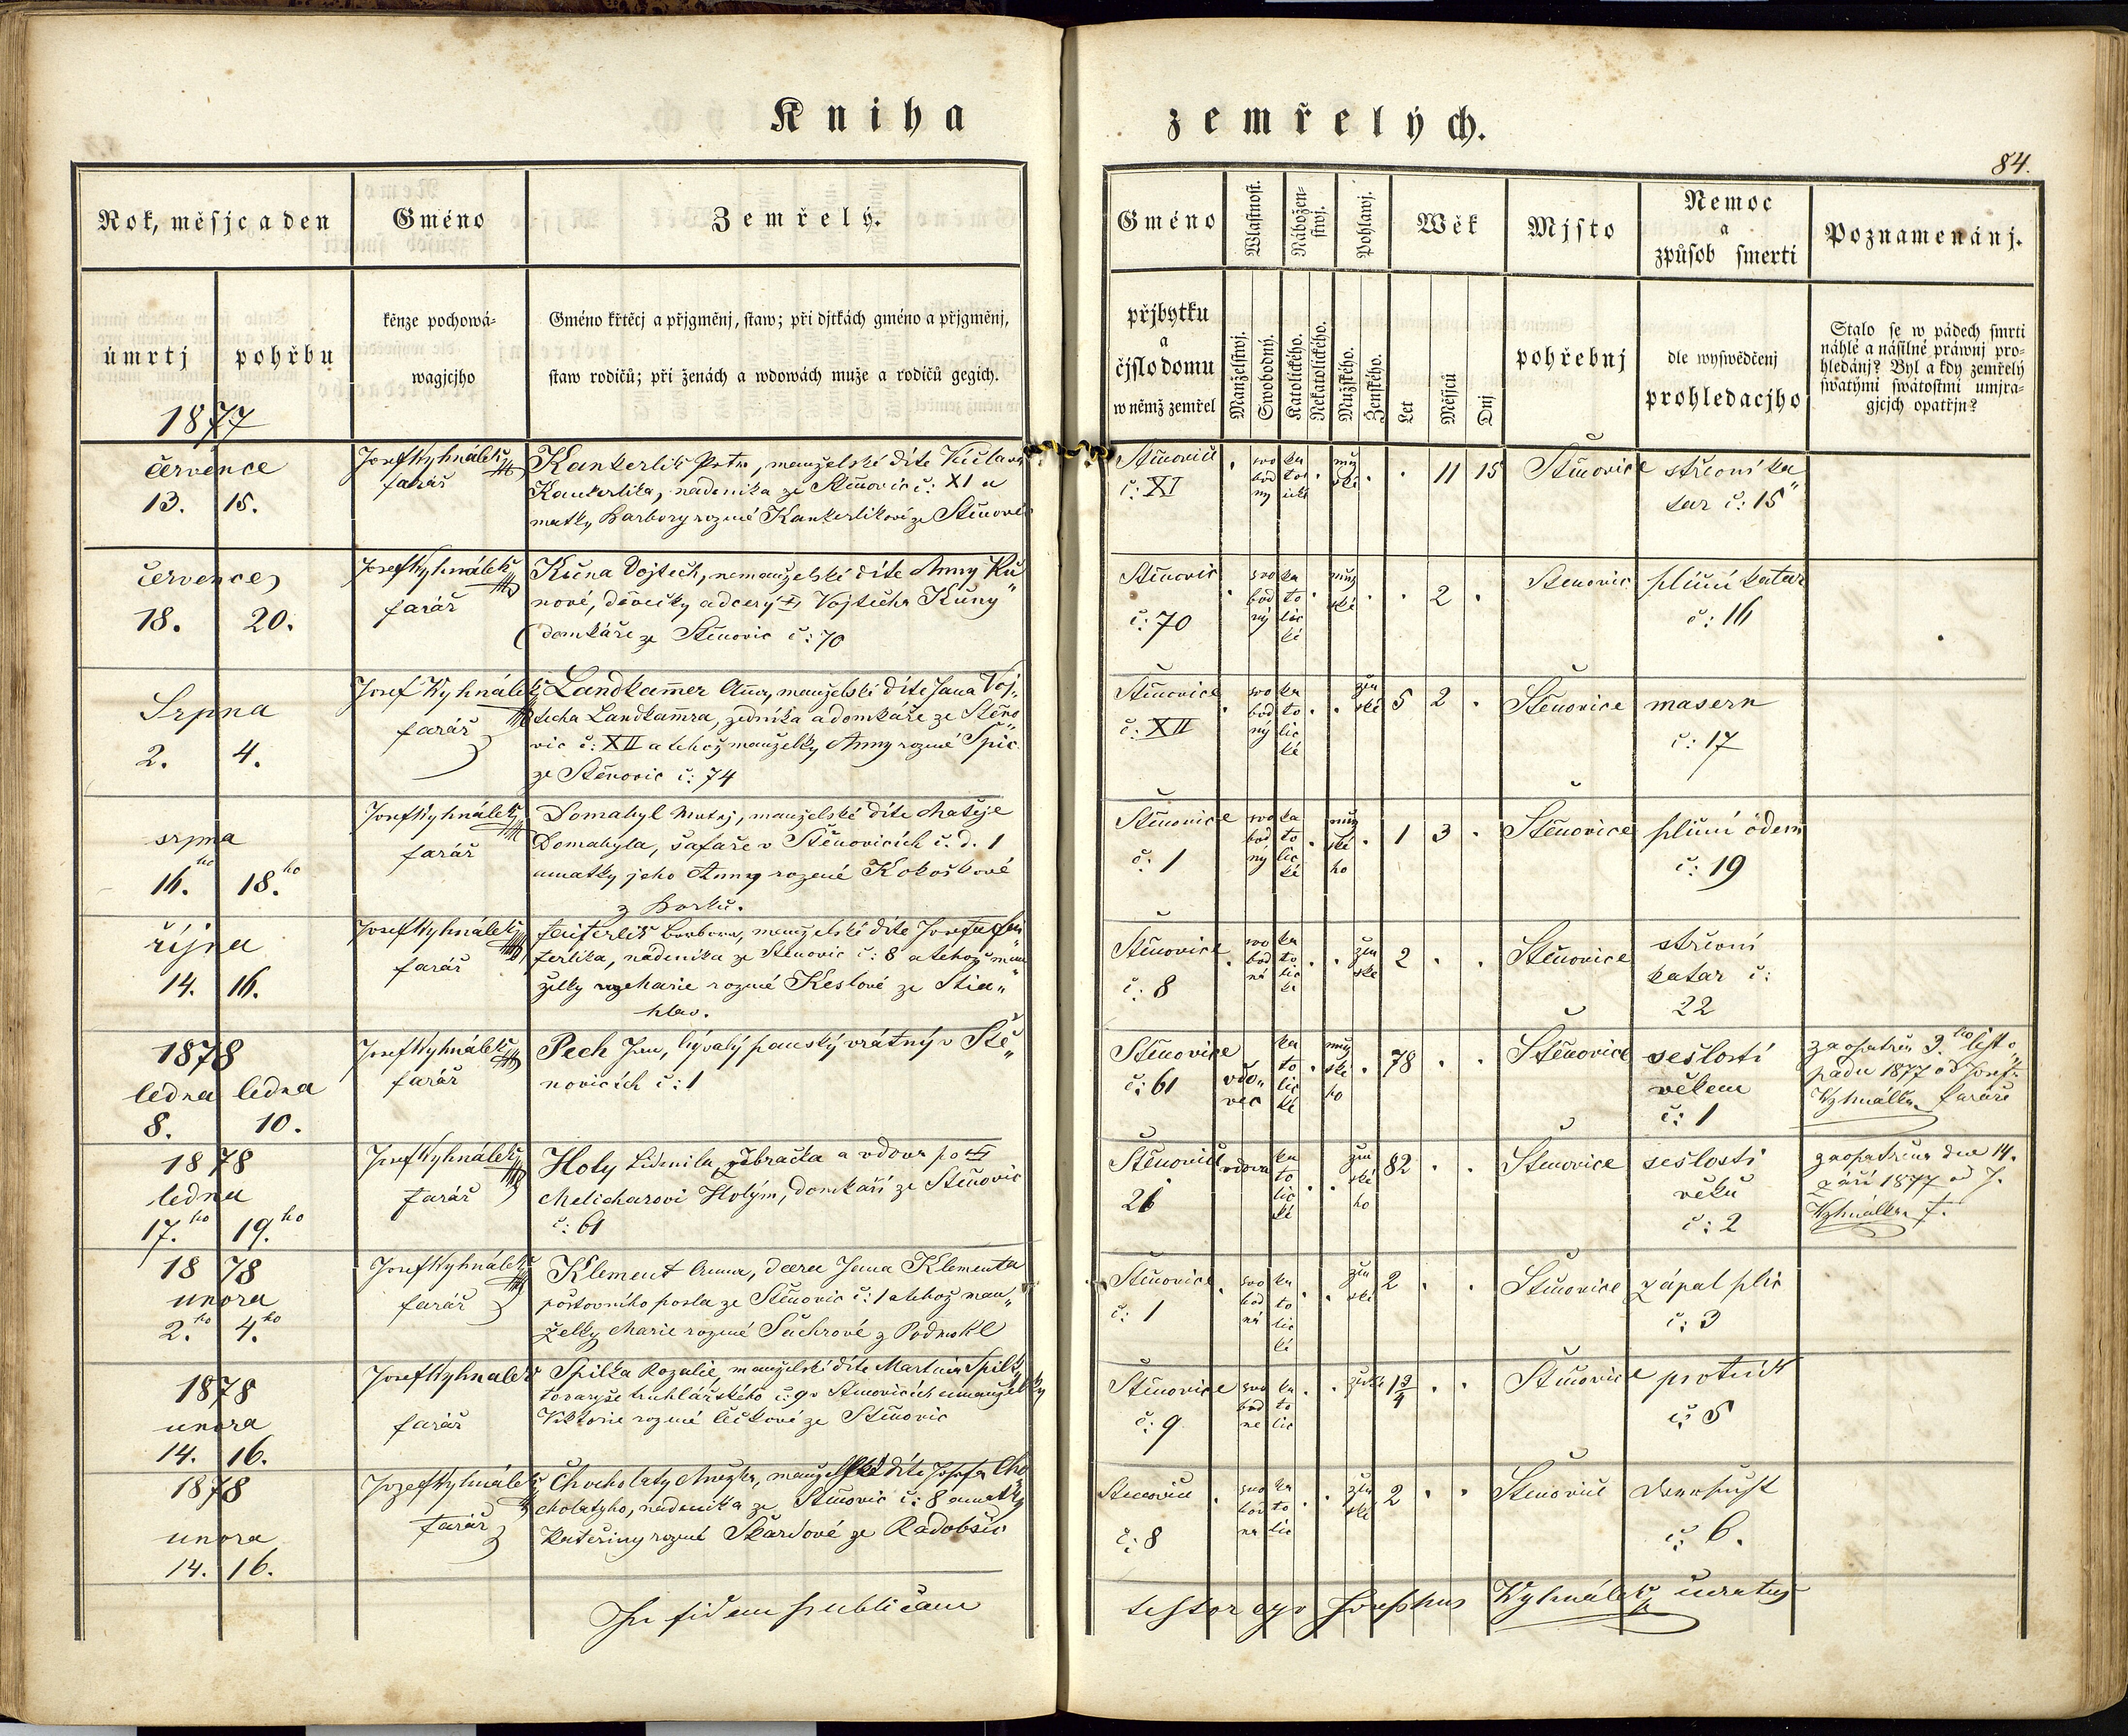 Kniha zemřelých.
84.
Rok, měsjc a den
Gméno
Zemřelý.
úmrtj
pohřbu
kěnze pochowá-
wagjcjho
Gméno křtěcj a přjgměnj, staw; při djtkách gméno a přjgměnj,
staw rodičů; při ženách a wdowách muže a rodičů gegich.
Gméno
Wlastnost.
Nábožen-
stwj.
Pohlawj.
Wěk
Mjsto
Nemoc
a
způsob smerti
Poznamenánj.
přjbytku
a
čjslo domu
w němž zemřel
Manželstwj.
Swobodný.
Katolického.
Nekatolického.
Mužského.
Ženského.
Let
Měsjců
Dnj
pohřebnj
dle wyswědčenj
prohledacjho
Stalo se w pádech smrti
náhlé a násilné práwnj pro-
hledánj? Byl a kdy zemřelý
swatými swátostmi umjra-
gjcjch opatřjn?
1877
července
13. 15.
Josef Kyhnálek
farář
Kankerlik Petr, manželské díte Václava
Kankerlika, nadenika ze Stěnovic č: XI a
matky Barbory rozené Kankerlikové ze Stěnovic
Stěnovice
č: XI
svo
bod
ný
ka
tol
ické
muž
ské
11 15
Stěnovice
střevní ka
tar č: 15
července
18. 20.
Josef Kyhnálek
farář
Kůna Vojtěch, nemanželské díte Anny Ků„
nové, děvečky a dcery † Vojtěcha Kůny
domkáře ze Stěnovic č: 70
Stěnovic
č: 70
svo
bod
ný
ka
to
lic
ké
muž
ské
2
Stenovic
plicní katar
č: 16
Srpna
2. 4.
Josef Kyhnálek
farář
Landkam̅er Anna, manželské díte Jana Voj„
těcha Landkam̅ra, zedníka a domkáře ze Stěno„
vic č: XII a téhož manželky Anny rozené Špic
ze Stěnovic č: 74
Stěnovice
č: XII
svo
bod
ný
ka
to
lic
ké
žen
ské
5 2
Stěnovice
masern
č: 17
srpna
16.ho 18.ho
Josef Kyhnálek
farář
Domabyl Matěj, manželské díte Matěje
Domabyla, šafáře v Stěnovicích č. d. 1
a matky jeho Anny rozené Kokoškové
z Borku.
Stěnovice
č: 1
svo
bod
ný
ka
to
lic
ké
muž
ské
ho
1 3
Stěnovice
plicní ödem
č: 19
října
14. 16.
Josef Kyhnálek
farář
Barbora, manželské díte Josefa
ferlika, nádeníka ze Stenovic č: 8 a téhož man„
želky Marie rozené Keslové ze Štia„
hlav.
Stěnovice
č: 8
svo
bod
ná
ka
to
lic
ké
žen
ské
2
Stěnovice
střevní
katar č:
22
1878
ledna ledna
8. 10.
Josef Kyhnálek
farář
Pech Jan, bývalý panský vrátný v Stě„
novicích č: 1
Stěnovice
č: 61
vdo„
vec
ka
to
lic
ké
muž
ské
ho
78
Stěnovice
sešlostí
věkem
č: 1
zaopatřen 3.ho listo„
padu 1877 od Josefa
Kyhnálka faráře
1878
ledna
17.ho 19.ho
Josef Kyhnálek
farář
Holy Lidmila, žebračka a vdova po †
Melicharovi Holým, domkáři ze Stěnovic
č: 61
Stěnovice
26
vdova
ka
to
lic
ké
žen
ské
ho
82
Stenovice
sešlostí
věku
č: 2
zaopatřena dne 14.
září 1877 od J.
Kyhnálka f.
1878
unora
2.ho 4.ho
Josef Kyhnálek
farář
Klement Anna, dcera Jana Klementa
poštovního posla ze Stěnovic č: 1 a téhož man„
želky Marie rozené Suchrové z Podmokl
Stěnovice
č: 1
svo
bod
ná
ka
to
lic
ké
žen
ské
2
Stěnovice
zápal plic
č: 3
1878
unora
14. 16.
Josef Kyhnalek
farář
Spilka Rozalie, manželské díte Martina Spilky
tovaryše truhlářského č: 9 v Stěnovicích a manželky
Viktorie rozené ze Stěnovic
Stěnovice
č: 9
svo
bod
ne
ka
to
lic
ženské
1 3/4
Stěnovice
č: 5
1878
unora
14. 16.
Jozef Kyhnálek
farář
Chocholatý Anežka, manželské díte Josefa Cho
cholatýho, nadeníka ze Stěnovic č: 8 a matky
Kateřiny rozené Škardové ze Radobčic
Stenovice
č: 8
svo
bod
na
ka
to
lic
žen
ské
2
Stěnovice
č: 6.
In fidem publicam
testor ego Josephus Kyhnálek curatus